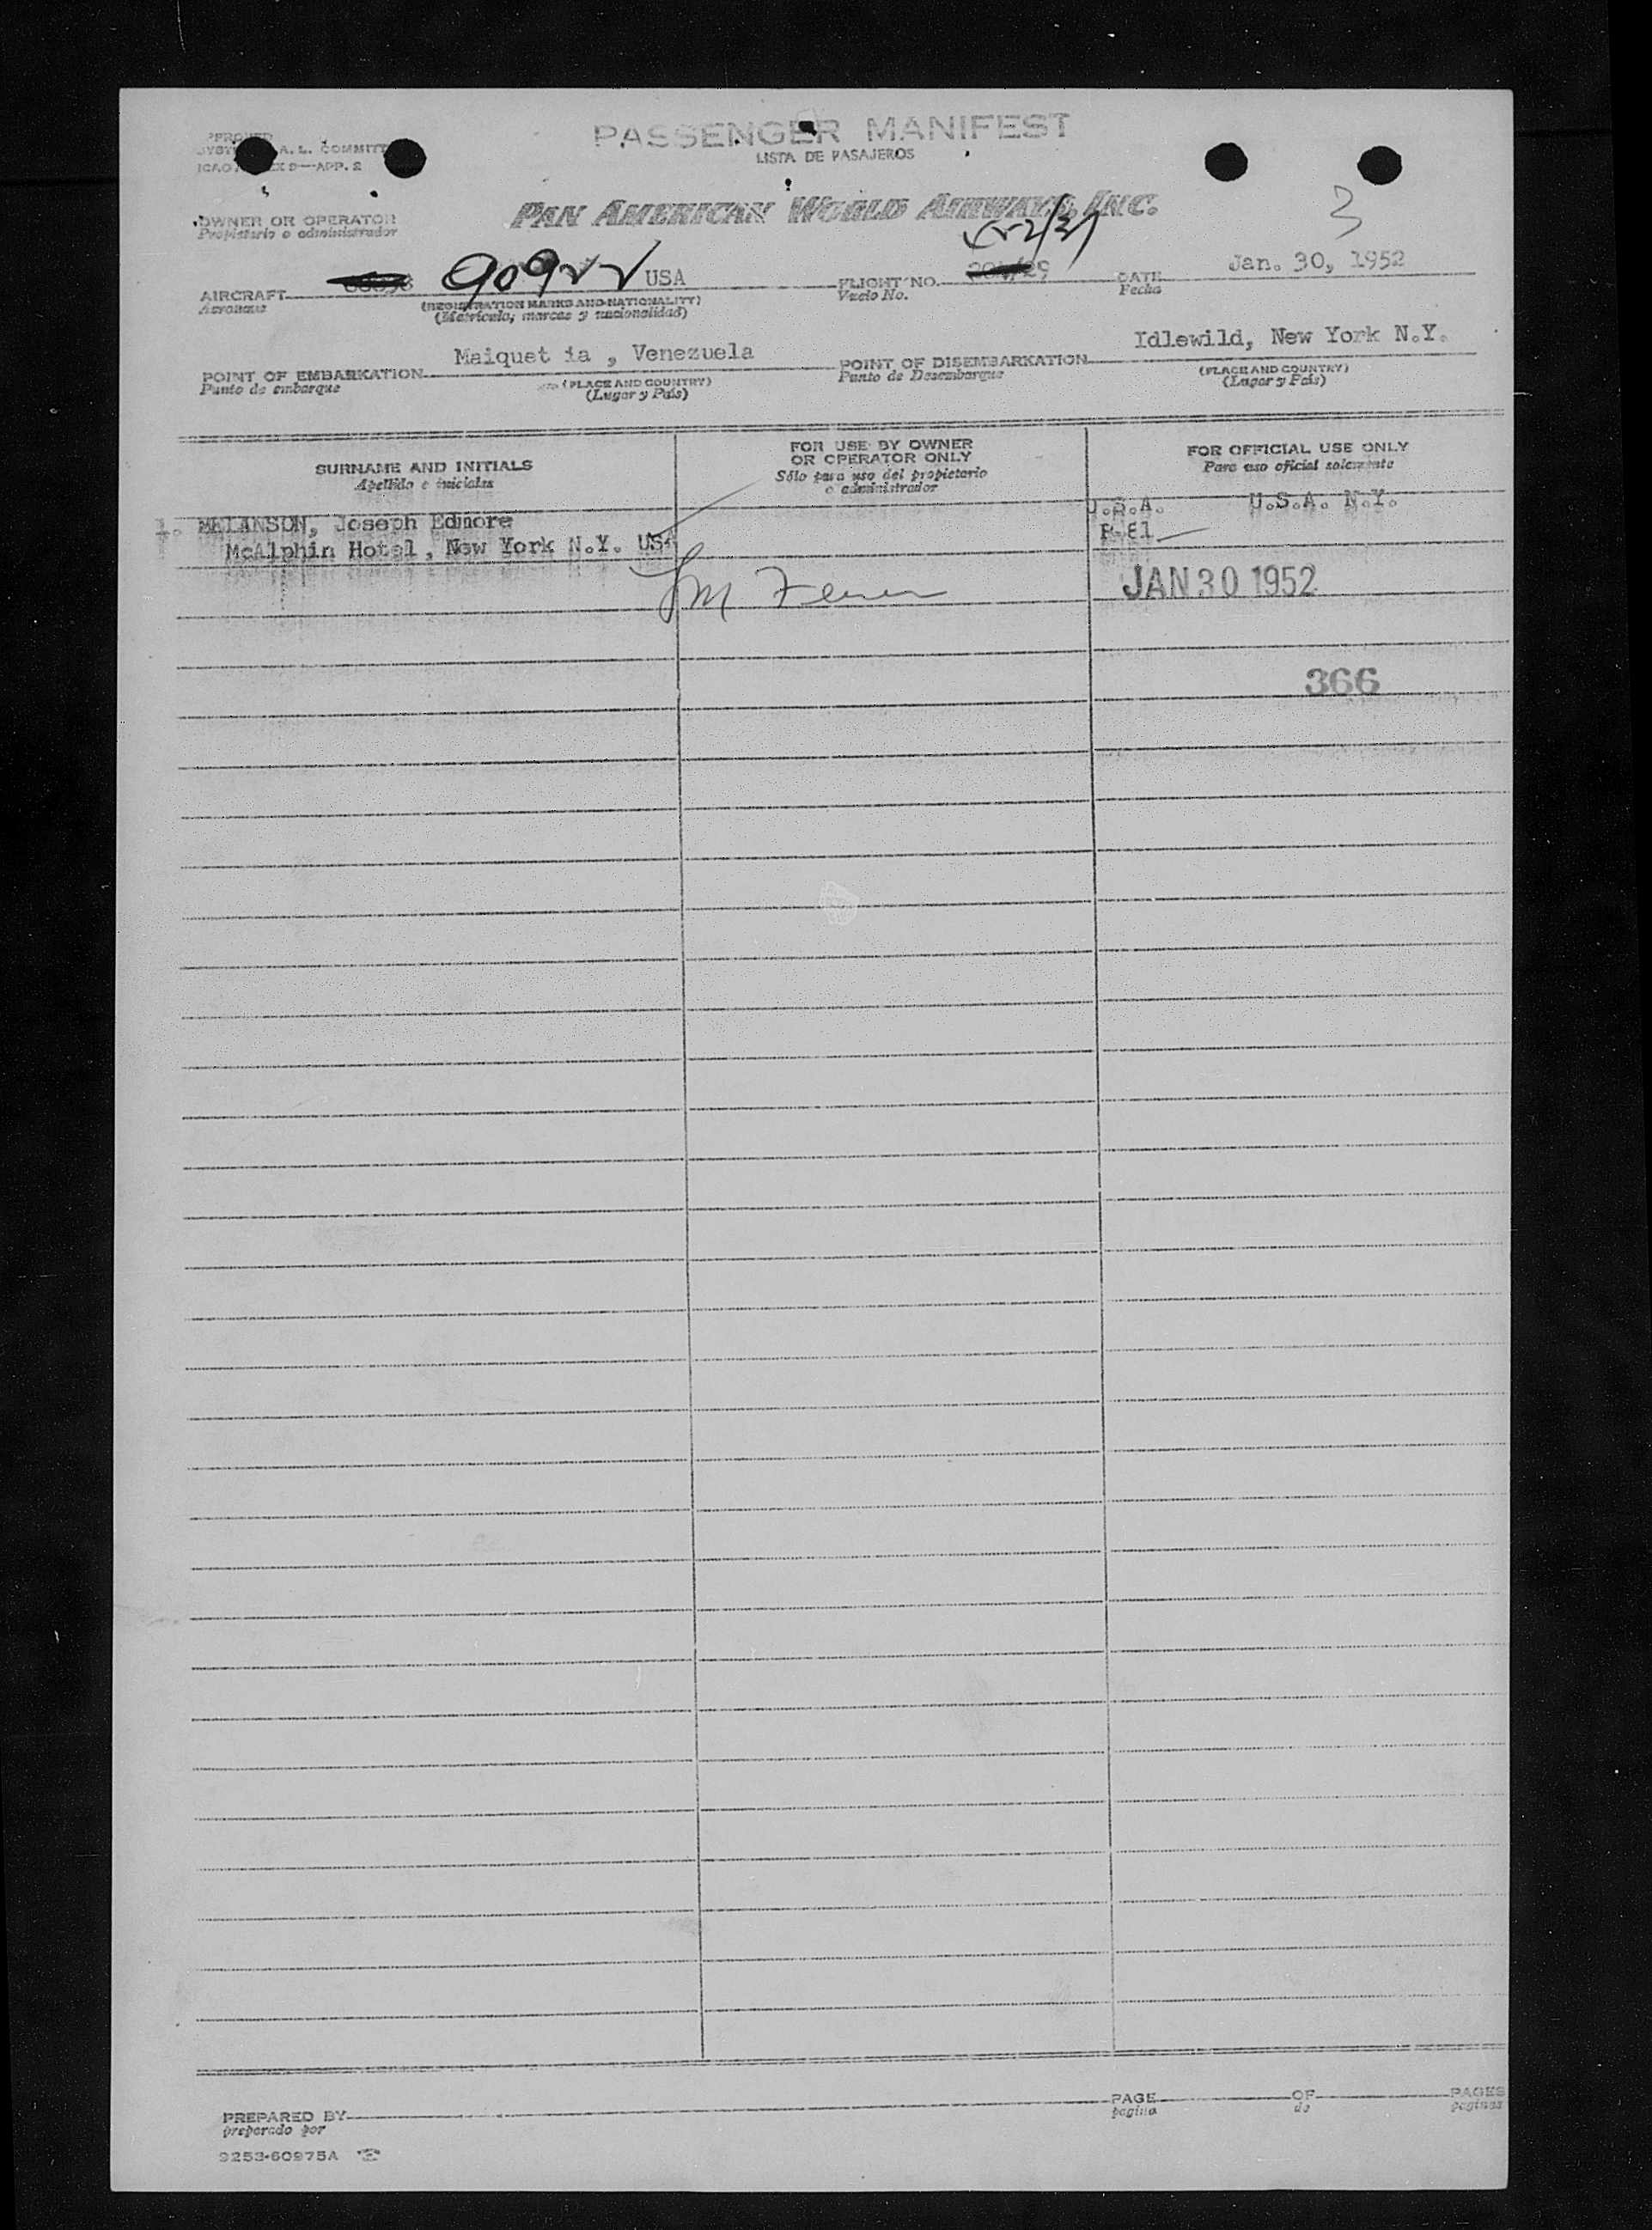 PASSENGER MANIFEST
LISTA DE PASAJEROS
A. L. COMMITT
APP. 2
3
OWNER OR OPERATOR
Propietario o administrador
PAN AMERICAN WORLD AIRWAYS, INC.
AIRCRAFT 90922 USA
Aeronave
(REGISTRATION MARKS AND NATIONALITY)
(Matrícula, marcas y nacionalidad)
FLIGHT NO.
Vuelo No.
DATE Jan. 30, 1952
Fecha
POINT OF EMBARKATION Maiquet ia , Venezuela
Punto de embarque
(PLACE AND COUNTRY)
(Lugar y País)
POINT OF DISEMBARKATION Idlewild, New York N.Y.
Punto de Desembarque
(PLACE AND COUNTRY)
(Lugar y País)
SURNAME AND INITIALS
Apellido e iniciales
FOR USE BY OWNER
OR OPERATOR ONLY
Sólo para uso del propietario
o administrador
FOR OFFICIAL USE ONLY
Para uso oficial solamente
1. MELANSON, Joseph Edmore U.S.A. U.S.A. N.Y.
McAlphin Hotel, New York N.Y. USA
JAN 30 1952
366
PREPARED BY
preparado por
PAGE OF PAGES
pagina de paginas
9253-60975A